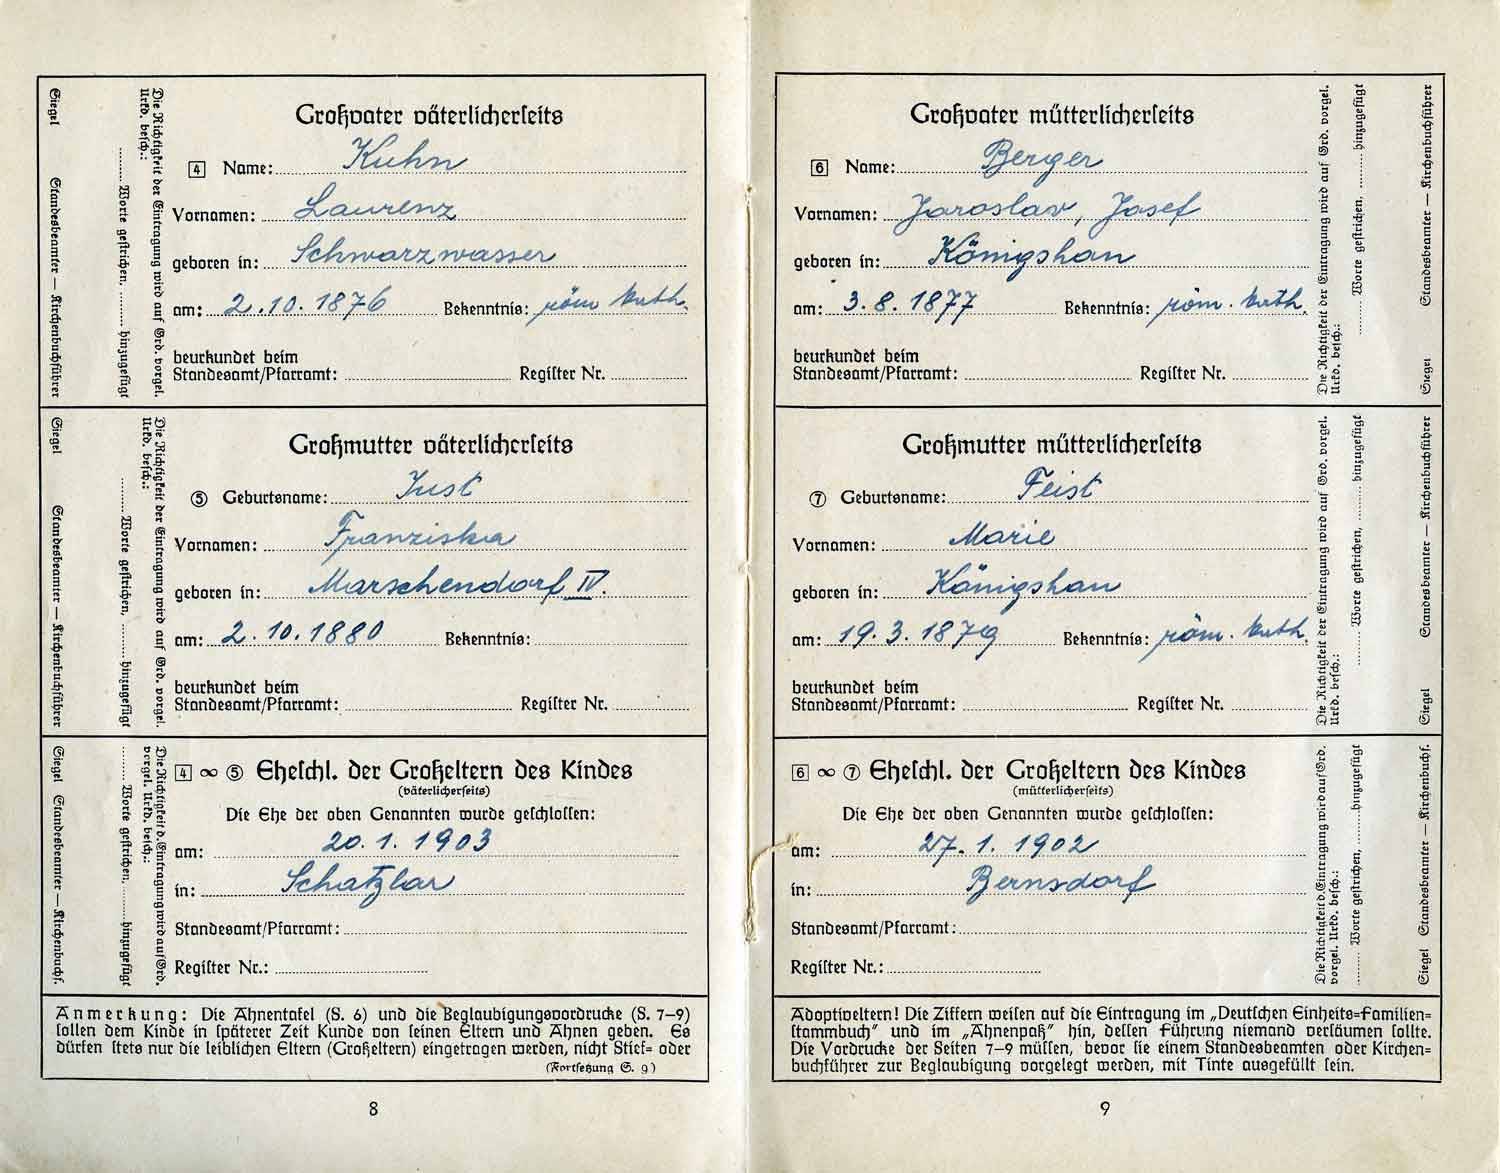 Großvater väterlicherseits
4 Name: Kuhn
Vornamen: Laurenz
geboren in: Schwarzwasser
am: 2.10.1876 Bekenntnis: röm kath.
beurkundet beim
Standesamt/Pfarramt: Register Nr.
Siegel Standesbeamter — Kirchenbuchführer
Worte gestrichen, hinzugefügt
Die Richtigkeit der Eintragung wird auf Grd. vorgel.
Urkd. besch.:
Großmutter väterlicherseits
5 Geburtsname: Just
Vornamen: Franziska
geboren in: Marschendorf IV.
am: 2.10.1880 Bekenntnis:
beurkundet beim
Standesamt/Pfarramt: Register Nr.
Siegel Standesbeamter — Kirchenbuchführer
Worte gestrichen, hinzugefügt
Die Richtigkeit der Eintragung wird auf Grd. vorgel.
Urkd. besch.:
4 ∞ 5 Eheschl. der Großeltern des Kindes
(väterlicherseits)
Die Ehe der oben Genannten wurde geschlossen:
am: 20.1.1903
in: Schatzlar
Standesamt/Pfarramt:
Register Nr.:
Siegel Standesbeamter — Kirchenbuchf.
Worte gestrichen, hinzugefügt
Die Richtigkeit d. Eintragung wird auf Grd.
vorgel. Urkd. besch.:
Anmerkung: Die Ahnentafel (S. 6) und die Beglaubigungsvordrucke (S. 7–9)
sollen dem Kinde in späterer Zeit Kunde von seinen Eltern und Ahnen geben. Es
dürfen stets nur die leiblichen Eltern (Großeltern) eingetragen werden, nicht Stief= oder
(Fortsetzung S. 9)
8
Großvater mütterlicherseits
6 Name: Berger
Vornamen: Jaroslav, Josef
geboren in: Königshan
am: 3.8.1877 Bekenntnis: röm. kath.
beurkundet beim
Standesamt/Pfarramt: Register Nr.
Die Richtigkeit der Eintragung wird auf Grd. vorgel.
Urkd. besch.:
Worte gestrichen, hinzugefügt
Siegel Standesbeamter — Kirchenbuchführer
Großmutter mütterlicherseits
7 Geburtsname: Feist
Vornamen: Marie
geboren in: Königshan
am: 19.3.1879 Bekenntnis: röm. kath.
beurkundet beim
Standesamt/Pfarramt: Register Nr.
Die Richtigkeit der Eintragung wird auf Grd. vorgel.
Urkd. besch.:
Worte gestrichen, hinzugefügt
Siegel Standesbeamter — Kirchenbuchführer
6 ∞ 7 Eheschl. der Großeltern des Kindes
(mütterlicherseits)
Die Ehe der oben Genannten wurde geschlossen:
am: 27.1.1902
in: Bernsdorf
Standesamt/Pfarramt:
Register Nr.:
Die Richtigkeit d. Eintragung wird auf Grd.
vorgel. Urkd. besch.:
Worte gestrichen, hinzugefügt
Siegel Standesbeamter — Kirchenbuchf.
Adoptiveltern! Die Ziffern weisen auf die Eintragung im „Deutschen Einheits=Familien=
stammbuch" und im „Ahnenpaß" hin, dessen Führung niemand versäumen sollte.
Die Vordrucke der Seiten 7–9 müssen, bevor sie einem Standesbeamten oder Kirchen=
buchführer zur Beglaubigung vorgelegt werden, mit Tinte ausgefüllt sein.
9